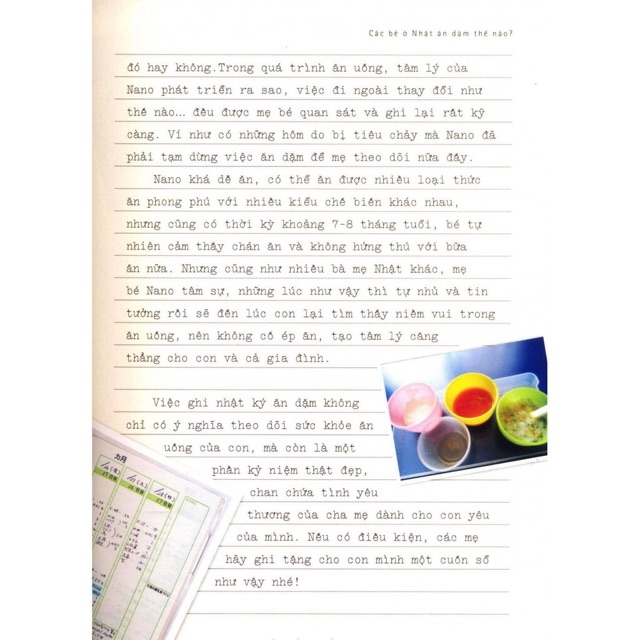 Các bé ở Nhật ăn dặm thế nào?
đó hay không.Trong quá trình ăn uống, tâm lý của
Nano phát triển ra sao, việc đi ngoài thay đổi như
thế nào... đều được mẹ bé quan sát và ghi lại rất kỹ
càng. Ví như có những hôm do bị tiêu chảy mà Nano đã
phải tạm dừng việc ăn dặm để mẹ theo dõi nữa đấy.
Nano khá dễ ăn, có thể ăn được nhiều loại thức
ăn phong phú với nhiều kiểu chế biến khác nhau,
nhưng cũng có thời kỳ khoảng 7-8 tháng tuổi, bé tự
nhiên cảm thấy chán ăn và không hứng thú với bữa
ăn nữa. Nhưng cũng như nhiều bà mẹ Nhật khác, mẹ
bé Nano tâm sự, những lúc như vậy thì tự nhủ và tin
tưởng rồi sẽ đến lúc con lại tìm thấy niềm vui trong
ăn uống, nên không cố ép ăn, tạo tâm lý căng
thẳng cho con và cả gia đình.
Việc ghi nhật ký ăn dặm không
chỉ có ý nghĩa theo dõi sức khỏe ăn
uống của con, mà còn là một
phần kỷ niệm thật đẹp,
chan chứa tình yêu
thương của cha mẹ dành cho con yêu
của mình. Nếu có điều kiện, các mẹ
hãy ghi tặng cho con mình một cuốn sổ
như vậy nhé!
カ月